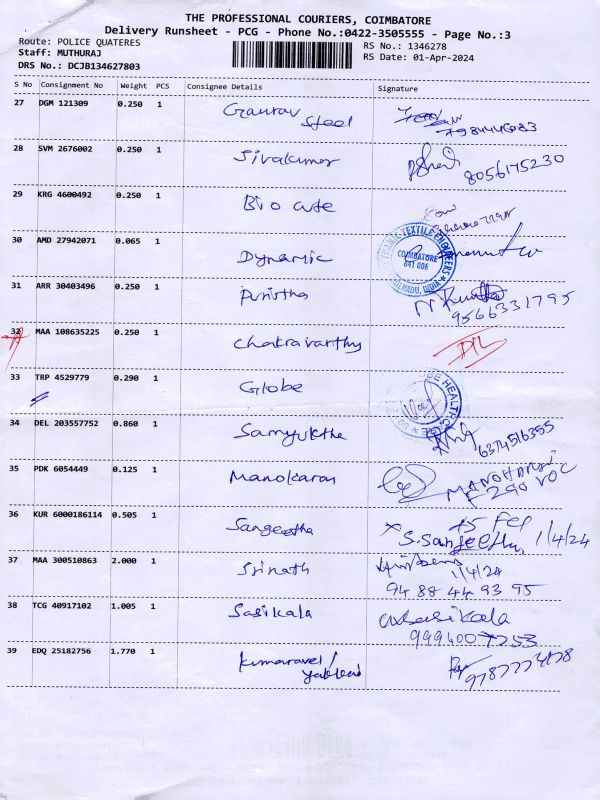 THE PROFESSIONAL COURIERS, COIMBATORE
Delivery Runsheet - PCG - Phone No.:0422-3505555 - Page No.:3
Route: POLICE QUATERES
RS No.: 1346278
Staff: MUTHURAJ
RS Date: 01-Apr-2024
DRS No.: DCJB134627803
S No Consignment No Weight PCS Consignee Details Signature
27 DGM 121309 0.250 1 Gaurav Steel
28 SVM 2676002 0.250 1 Sivakumar 8056175230
29 KRG 4600492 0.250 1 Bio cute
30 AMD 27942071 0.065 1 Dynamic
TEXTILE ENGINEERS
COIMBATORE
641 006
31 ARR 30403496 0.250 1 9566331795
32 MAA 108635225 0.250 1 Chakravarthy
33 TRP 4529779 0.290 1 Globe
34 DEL 203557752 0.860 1 Samyuktha 6374516355
35 PDK 6054449 0.125 1 Manokaran
F 290 VOC
36 KUR 6000186114 0.505 1 Sangeetha S.Sangeetha, 1/4/24
37 MAA 300510863 2.000 1 Srinath 1/4/24
94 88 44 93 95
38 TCG 40917102 1.005 1 Sasikala
9994007253
39 EDQ 25182756 1.770 1 Kumaravel/